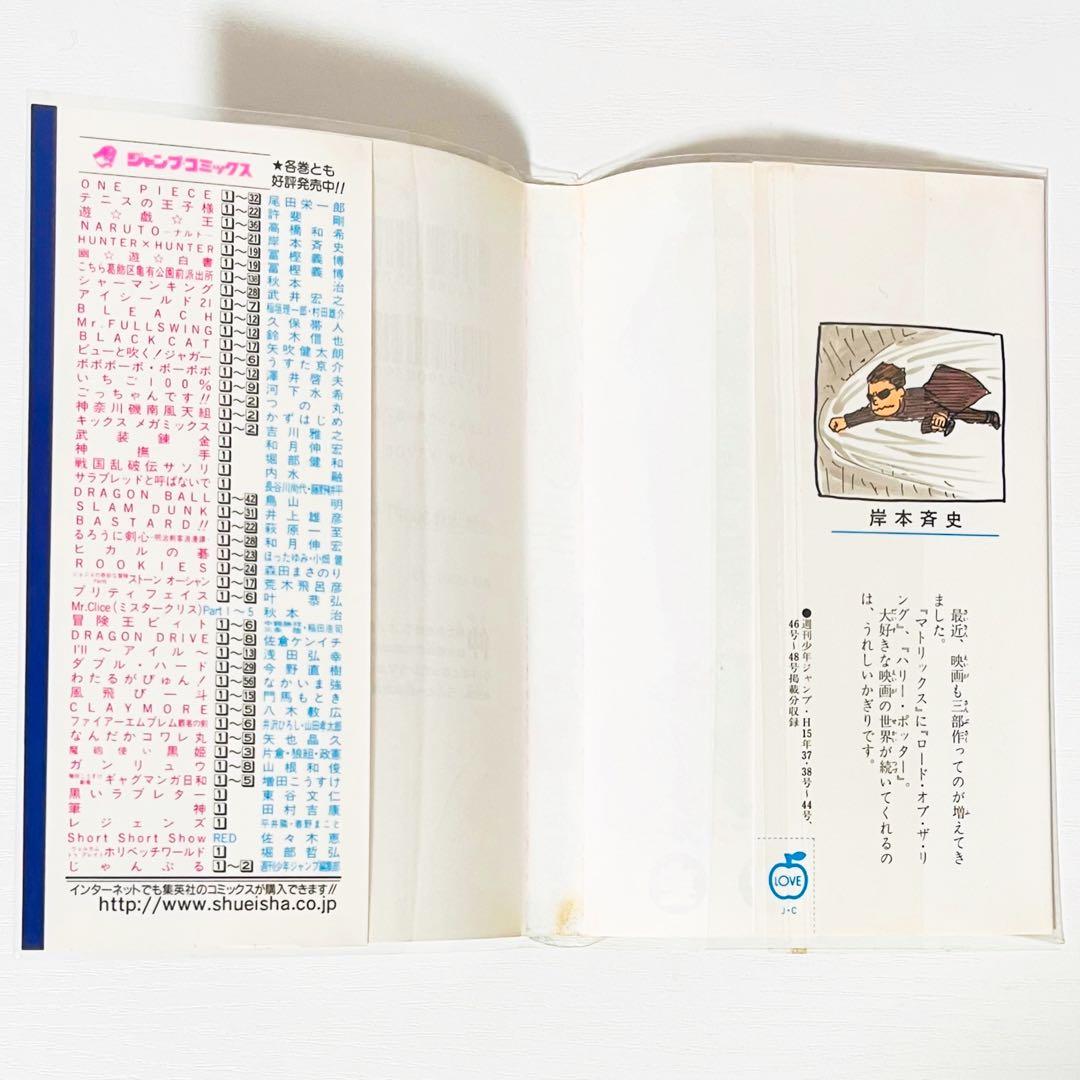 ジャンプコミックス
★各巻とも
好評発売中!!
ONE PIECE 1〜32 尾田栄一郎
テニスの王子様 1〜22 許斐剛
遊☆戯☆王 1〜36 高橋和希
NARUTO―ナルト― 1〜21 岸本斉史
HUNTER×HUNTER 1〜19 冨樫義博
幽☆遊☆白書 1〜19 冨樫義博
こちら葛飾区亀有公園前派出所 1〜138 秋本治
シャーマンキング 1〜28 武井宏之
アイシールド21 1〜7 稲垣理一郎・村田雄介
BLEACH 1〜12 久保帯人
Mr.FULLSWING 1〜12 鈴木信也
BLACK CAT 1〜17 矢吹健太朗
ピューと吹く!ジャガー 1〜6 うすた京介
ボボボーボ・ボーボボ 1〜12 澤井啓夫
いちご100% 1〜9 河下水希
ごっちゃんです!! 1〜2 つの丸
神奈川磯南風天組 1〜2 かずはじめ
キックス メガミックス 1〜2 吉川雅之
武装錬金 1 和月伸宏
神撫手 1 堀部健和
戦国乱破伝サソリ 1 内水融
サラブレッドと呼ばないで 1 長谷川尚代・藤野耕平
DRAGON BALL 1〜42 鳥山明
SLAM DUNK 1〜31 井上雄彦
BASTARD!! 1〜22 萩原一至
るろうに剣心―明治剣客浪漫譚― 1〜28 和月伸宏
ヒカルの碁 1〜23 ほったゆみ・小畑健
ROOKIES 1〜24 森田まさのり
ストーン オーシャン 1〜17 荒木飛呂彦
プリティフェイス 1〜6 叶恭弘
Mr.Clice(ミスタークリス) Part 1〜5 秋本治
冒険王ビィト 1〜6 三条陸・稲田浩司
DRAGON DRIVE 1〜8 佐倉ケンイチ
I'll〜アイル〜 1〜13 浅田弘幸
ダブル・ハード 1〜29 今野直樹
わたるがぴゅん! 1〜56 なかいま強
風飛び一斗 1〜15 門馬もとき
CLAYMORE 1〜5 八木教広
ファイアーエムブレム覇者の剣 1〜6 井沢ひろし・山田孝太郎
なんだかコワレ丸 1〜5 矢也晶久
魔砲使い黒姫 1〜3 片倉・狼組・政憲
ガンリュウ 1〜8 山根和俊
増田こうすけ劇場 ギャグマンガ日和 1〜5 増田こうすけ
黒いラブレター 1 東谷文仁
筆神 1 田村吉康
レジェンズ 1 平井隆・春野まこと
Short Short Show RED 佐々木恵
ホリベッチワールド 1 堀部哲弘
じゃんぷる 1〜2 週刊少年ジャンプ編集部
インターネットでも集英社のコミックスが購入できます!!
http://www.shueisha.co.jp
岸本斉史
最近、映画も三部作ってのが増えてき
ました。
『マトリックス』に『ロード・オブ・ザ・リ
ング』、『ハリー・ポッター』。
大好きな映画の世界が続いてくれるの
は、うれしいかぎりです。
●週刊少年ジャンプ・H15年37・38号〜44号、
46号〜48号掲載分収録
LOVE
J・C